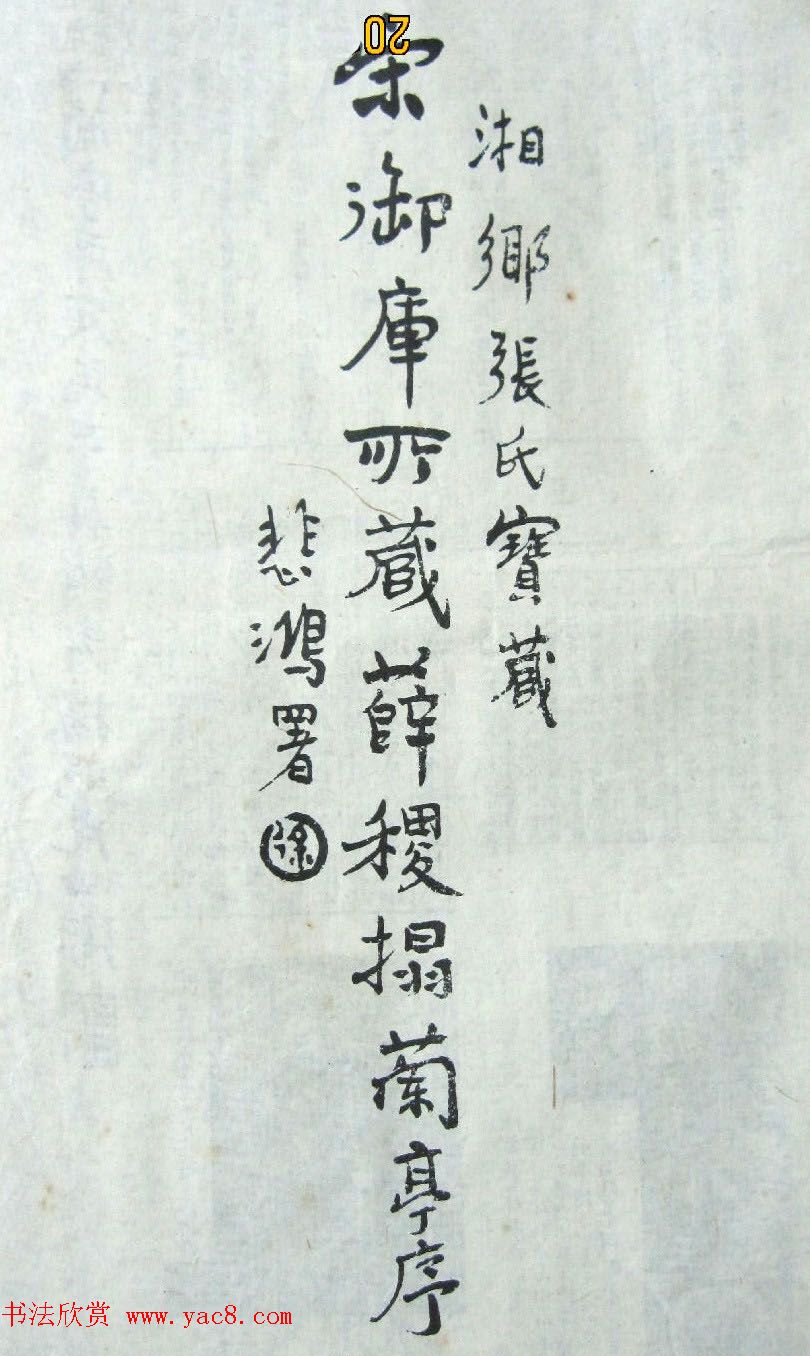 20
湘鄉張氏寶蔵
宋御庫所蔵薛稷搨蘭亭序
悲鴻署
徐
书法欣赏 www.yac8.com